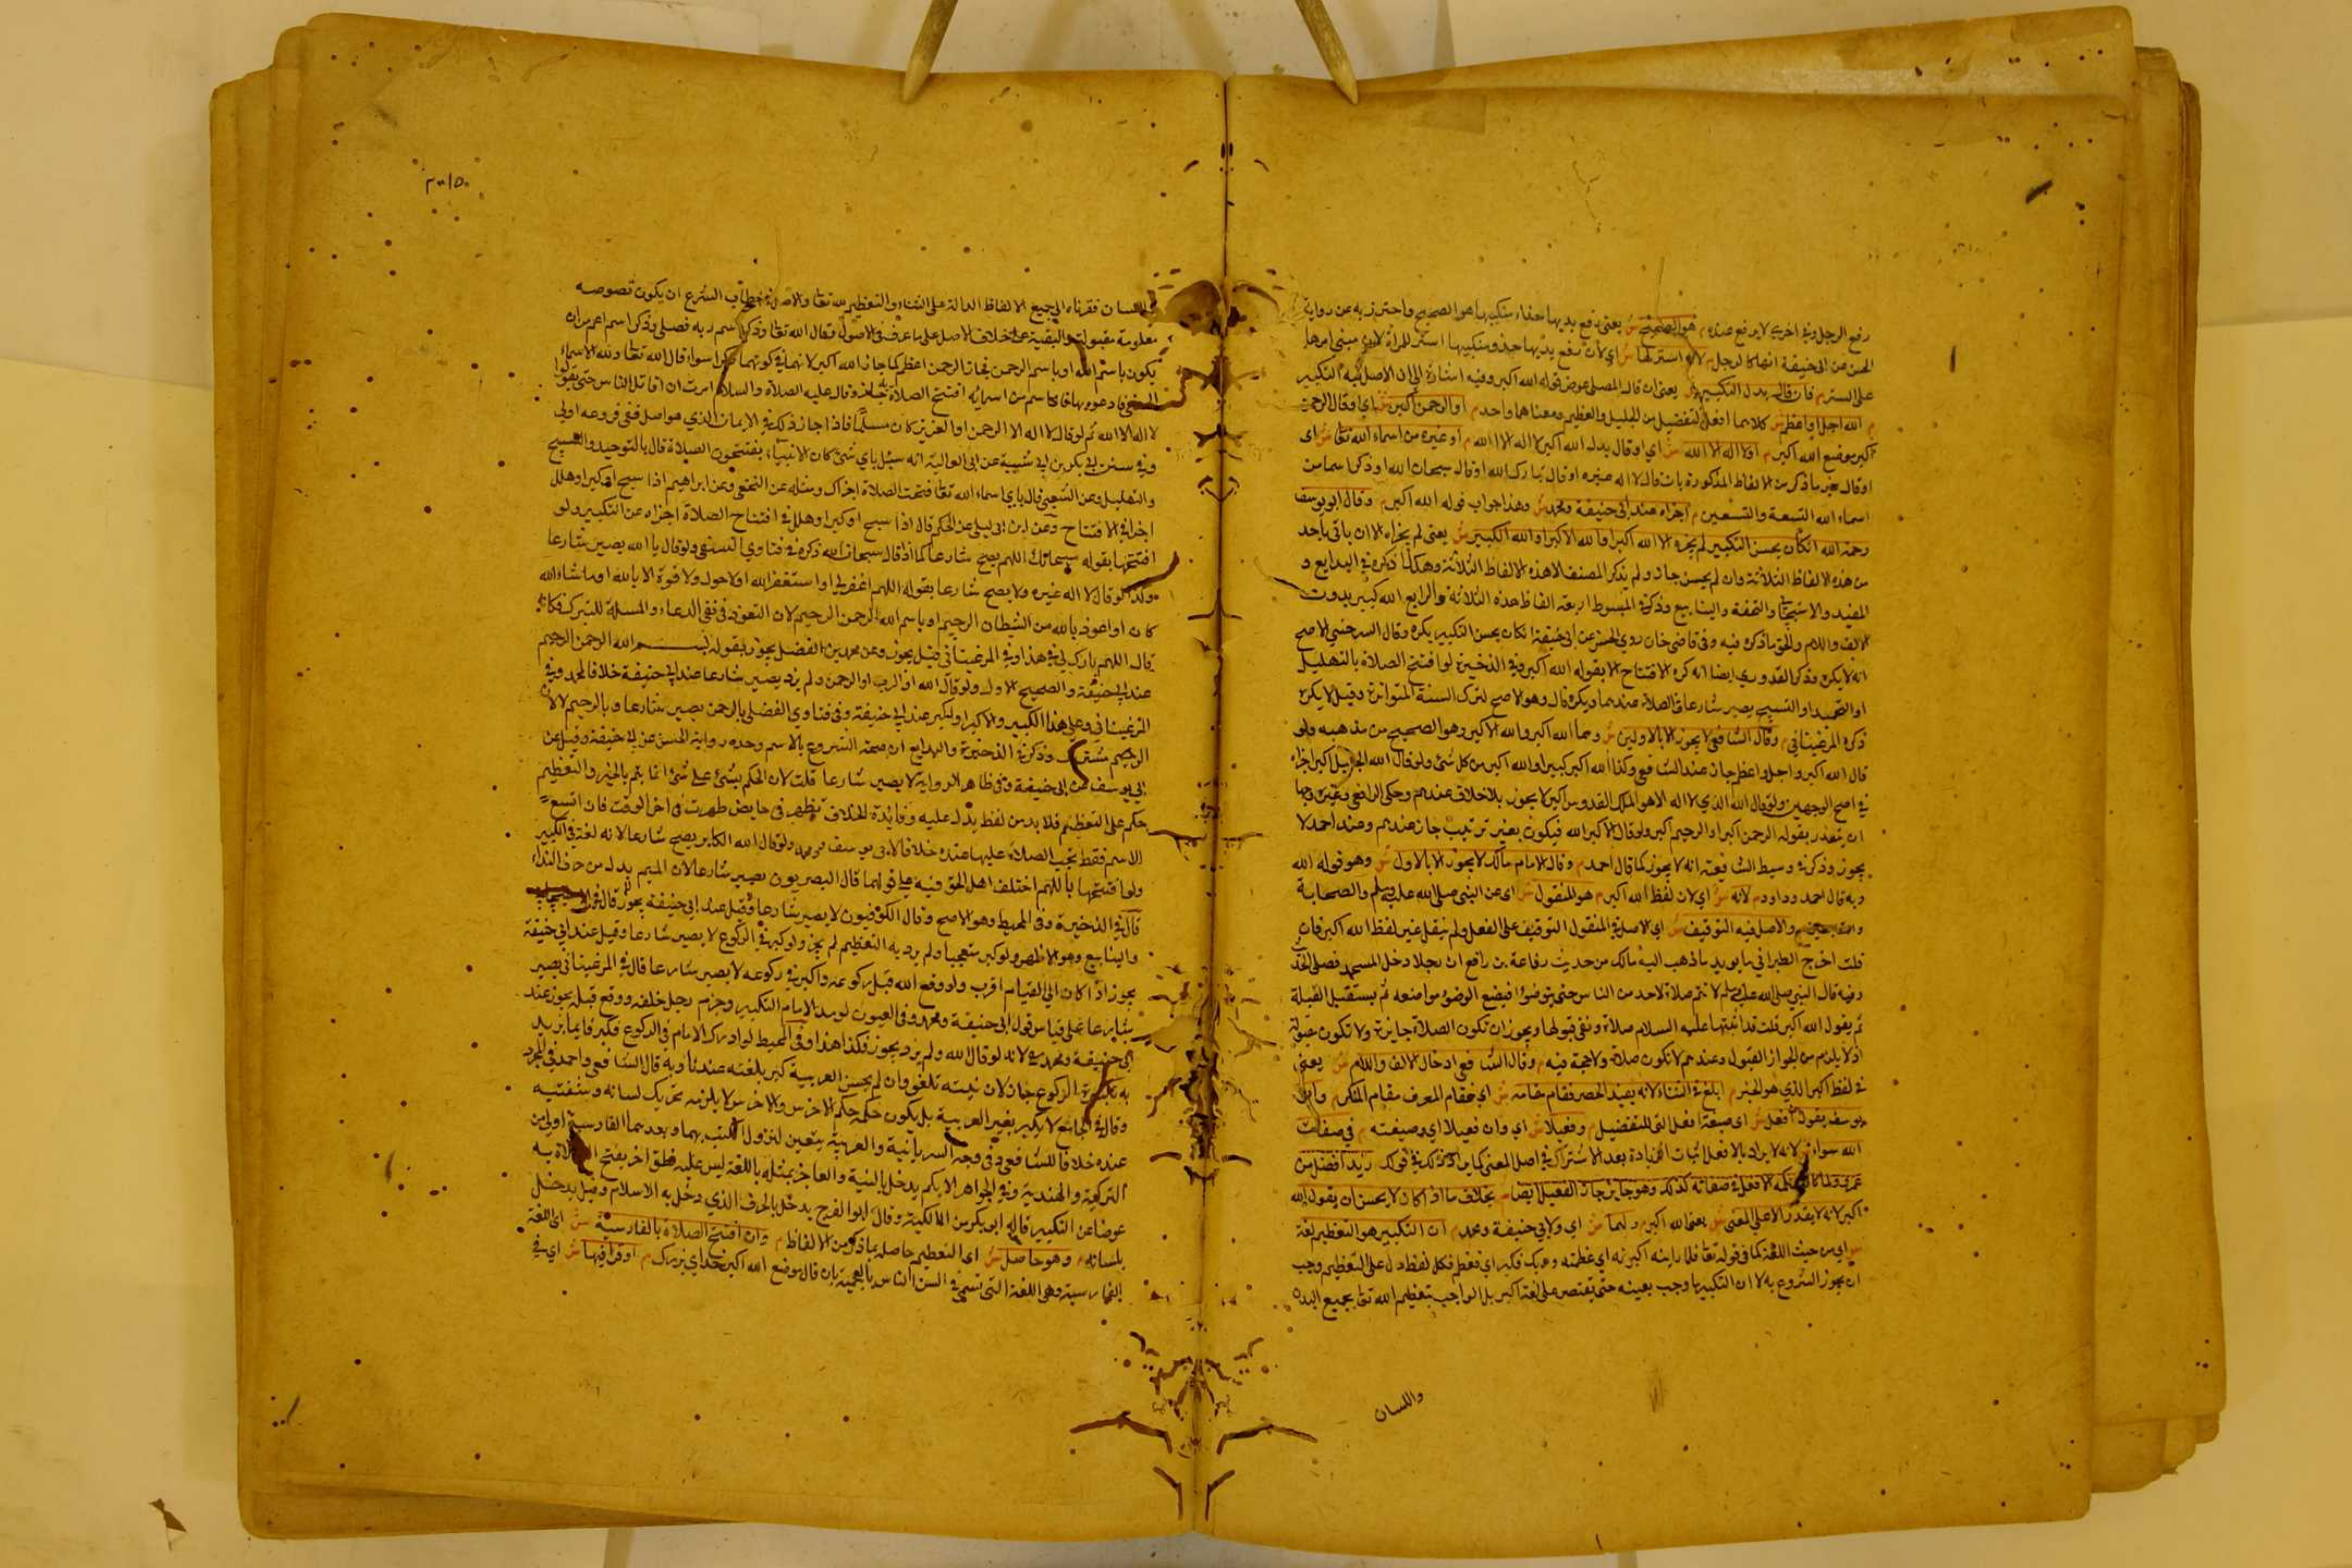 رفع الرجل وفي اخرى لا يرفع صدره م هو الصحيح ش يعني رفع يديها حذاء منكبيها هو الصحيح واحترز به عن رواية
الحسن عن ابي حنيفة انها كالرجل م لانه استر لها ش اي لان رفع يديها حذو منكبيها استر للمرأة لان مبنى امرها
على الستر م فان قال بدل التكبير ش يعني ان قال المصلي عوض قوله الله اكبر وفيه اشارة الى ان الاصل فيه التكبير
م الله اجل او اعظم ش كلاهما افعل التفضيل من الجليل والعظيم ومعناهما واحد م او الرحمن اكبر ش اي او قال الرحمن
اكبر موضع الله اكبر م او لا اله الا الله ش اي او قال بدل الله اكبر لا اله الا الله م او غيره من اسماء الله تعا ش اى
او قال غير ما ذكر من الالفاظ المذكورة بان قال لا اله غيره او قال تبارك الله او قال سبحان الله او ذكر اسما من
اسماء الله التسعة والتسعين م اجزاه عند ابي حنيفة ومحمد ش وهذا جواب قوله الله اكبر م وقال ابو يوسف
رحمة الله ان كان يحسن التكبير لم يجزه الا الله اكبر او الله الاكبر او الله الكبير ش يعني لم يجزاه الا ان ياتي باحد
من هذه الالفاظ الثلاثة وان لم يحسن جاز ولم يذكر المصنف الا هذه الالفاظ الثلاثة وهكذا ذكره في البدايع و
المفيد والاسبيجابي والتحفة والينابيع وذكر في المبسوط اربعة الفاظ هذه الثلاثة والرابع الله كبير بدون
الالف واللام والحق ما ذكره فيه وفي قاضي خان روى الحسن عن ابي حنيفة ان كان يحسن التكبير يكره وقال السرخسي الاصح
انه لا يكره وذكر القدوري ايضا انه كره الافتتاح الا بقوله الله اكبر وفي الذخيرة لو افتتح الصلاة بالتهليل
او التحميد او التسبيح يصير شارعا في الصلاة عندهما ويكره قال وهو الاصح لترك السنة المتواترة وقيل لا يكره
ذكره المرغيناني م وقال الشافعي لا يجوز الا بالاولين ش وهما الله اكبر والله الاكبر وهو الصحيح من مذهبه ولو
قال الله اكبر واجل واعظم جاز عند الشافعي وكذا الله اكبر كبيرا والله اكبر من كل شئ ولو قال الله الجليل اكبر اجزاه
في اصح الوجهين ولو قال الله الذي لا اله الا هو الملك القدوس اكبر لا يجوز بلا خلاف عندهم وحكى الرافعي وغيره وجها
ان يتعذر بقوله الرحمن اكبر او الرحيم اكبر ولو قال الاكبر الله فيكون بغير ترتيب جاز عندهم وعند احمد لا
يجوز وذكر في وسيط الشافعية انه لا يجوز كما قال احمد م وقال الامام مالك لا يجوز الا بالاول ش وهو قوله الله
وبه قال احمد وداود م لانه ش اي لان لفظ الله اكبر م هو المنقول ش اى عن النبي صلى الله عليه وسلم والصحابة
والاصل فيه التوقيف ش اي الاصل في المنقول التوقيف على الفعل ولم ينقل غير لفظ الله اكبر فان
قلت اخرج الطبراني ما يويد ما ذهب اليه مالك من حديث رفاعة بن رافع ان رجلا دخل المسجد فصلى الحديث
وفيه قال النبي صلى الله عليه وسلم لا تتم صلاة لاحد من الناس حتى يتوضؤا فيضع الوضوء مواضعه ثم يستقبل القبلة
ثم يقول الله اكبر قلت قد اثبتها عليه السلام صلاة ونفى قبولها ويجوز ان تكون الصلاة جايزة ولا تكون مقبولة
اذ لا يلزم من الجواز القبول وعندهم لا تكون صلاة ولا حجة فيه م وقال الشافعي ادخال الالف واللام ش يعني
في لفظ اكبر الذي هو الخبر م ابلغ في الثناء لانه يفيد الحصر فقام مقامه ش اي فقام المعرف مقام المنكر م وابو
يوسف يقول ان افعل ش اى صيغة افعل التي للتفضيل م وفعيلا ش اي وان فعيلا اي وصيغته م في صفات
الله سواء ش لانه لا يراد بالافعل اثبات الزيادة بعد الاشتراك في اصل المعنى كما يراد ذلك في قولك زيد افضل من
عمرو الافعل في صفاته كذلك وهو جايز جاز الفعيل ايضا م بخلاف ما اذا كان لا يحسن ان يقول الله
اكبر لانه لا يقدر الا على المعنى ش يعني الله اكبر م ولهما ش اي ولابي حنيفة ومحمد م ان التكبير هو التعظيم لغة
ش اي من حيث اللغة كما في قوله تعا فلما راينه اكبرنه اي عظمنه وربك فكبر اي فعظم فكل لفظ دل على التعظيم وجب
ان يجوز الشروع به لا ان التكبير ما وجب بعينه حتى يقتصر على لغة اكبر بل الواجب تعظيم الله تعا بجميع البدن
واللسان
واللسان فقرناه الى جميع الالفاظ الدالة على الثناء والتعظيم لله تعا والاصل في خطاب الشرع ان يكون نصوصه
معلومة مقبولة والبقية على خلاف الاصل على ما عرف في الاصول وقال الله تعا وذكر اسم ربه فصلى وذكر اسم اعم من ان
يكون باسم الله او باسم الرحمن فجاز الرحمن اعظم كما جاز الله اكبر لانهما في كونهما ذكرا سواء قال الله تعا ولله الاسماء
الحسنى فادعوه بها فاذا باسم من اسمايه افتتح الصلاة جاز وقال عليه الصلاة والسلام امرت ان اقاتل الناس حتى يقولوا
لا اله الا الله ثم لو قال لا اله الا الرحمن او العزيز كان مسلما فاذا جاز ذلك في الايمان الذي هو اصل ففي فروعه اولى
وفي سنن ابي بكر بن ابي شيبة عن ابي العالية انه سئل باي شئ كان الانبياء يفتتحون الصلاة قال بالتوحيد والتسبيح
والتهليل وعن الشعبي قال باي اسماء الله تعا فتحت الصلاة اجزاك ومثله عن النخعي وعن ابراهيم اذا سبح او كبر او هلل
اجزاه في الافتتاح وعن ابن ابي ليلى عن الحكم قال اذا سبح او كبر او هلل في افتتاح الصلاة اجزاه عن التكبير ولو
افتتحها بقوله سبحانك اللهم يصح شارعا كما اذا قال سبحان الله ذكره في فتاوي النسفي ولو قال يا الله يصير شارعا
وكذا لو قال لا اله غيره ولا يصح شارعا بقوله اللهم اغفر لي او استغفر الله او لا حول ولا قوة الا بالله او ما شاء الله
كان او اعوذ بالله من الشيطان الرجيم او باسم الله الرحمن الرحيم لان التعوذ في فنى الدعاء والبسملة للتبرك فكانه
قال اللهم بارك لي في هذا وفي المرغيناني قيل يجوز وعن محمد بن الفضل يجوز بقوله بسم الله الرحمن الرحيم
عند ابي حنيفة والصحيح الاول ولو قال الله او الرب او الرحمن ولم يزد يصير شارعا عند ابي حنيفة خلافا لمحمد وفي
المرغيناني وعلى هذا الكبير والاكبر او اكبر عند ابي حنيفة وفي فتاوى الفضلي بالرحمن يصير شارعا وبالرحيم لا لان
الرحيم مشترك وذكر في الذخيرة والبدايع ان صحة الشروع بالاسم وحده رواية الحسن عن ابي حنيفة وقيل عن
ابي يوسف عن ابي حنيفة وفي ظاهر الرواية لا يصير شارعا قلت لان الحكم بشئ على شئ انما يتم بالخبر والتعظيم
حكم على التعظيم فلا بد من لفظ يدل عليه وفايدة الخلاف تظهر في حايض طهرت في اخر الوقت فان اتسع
الاسم فقط تجب الصلاة عليها عنده خلافا لابي يوسف ومحمد ولو قال الله الكبار يصح شارعا لانه لغة في الكبير
ولو افتتحها باللهم اختلف اهل الحق فيه على قولهما قال البصريون يصير شارعا لان الميم بدل من حرف النداء
قال في الذخيرة وفي المحيط وهو الاصح وقال الكوفيون لا يصير شارعا وقيل عند ابي حنيفة يجوز
والينابيع وهو الاظهر ولو كبر متعجبا ولم يرد به التعظيم لم يجز ولو كبر في الركوع لا يصير شارعا وقيل عند ابي حنيفة
يجوز اذا كان الى القيام اقرب ولو وقع الله قبل ركوعه واكبر في ركوعه لا يصير شارعا قال في المرغيناني يصير
شارعا على قياس قول ابي حنيفة ومحمد وفي العيون لو مد الامام التكبير وجزم رجل خلفه ووقع قبله يجوز عند
ابي حنيفة ومحمد لانه لو قال الله ولم يزد يجوز فكذا هذا وفي المحيط لو ادرك الامام في الركوع فكبر قايما يريد
به تكبيرة الركوع جاز لان نيته تلغى وان لم يحسن العربية كبر بلغته عندنا وبه قال الشافعي واحمد في المجرد
وقال في الجامع لا يكبر بغير العربية بل يكون حكمه حكم الاخرس والاخرس لا يلزمه تحريك لسانه وشفتيه
عنده خلافا للشافعي وفي وجه السريانية والعبرية يتعين لنزول الكتب بهما وبعدهما الفارسية اولى من
التركية والهندية وفي الجواهر الابكم يدخل بالنية والعاجز بمثله باللغة ليس عليه نطق اخر يفتح الصلاة به
عوضا عن التكبير قاله ابو بكر من المالكية وقال ابو الفرج يدخل بالحرف الذي دخل به الاسلام وقيل يدخل
بلسانه م وهو حاصل ش اى التعظيم حاصل بما ذكر من الالفاظ م وان افتتح الصلاة بالفارسية ش اى اللغة
الفارسية وهي اللغة التي تسمى في السن الناس بالعجمية بان قال موضع الله اكبر خداي بزرك م او قرا فيها ش اي في